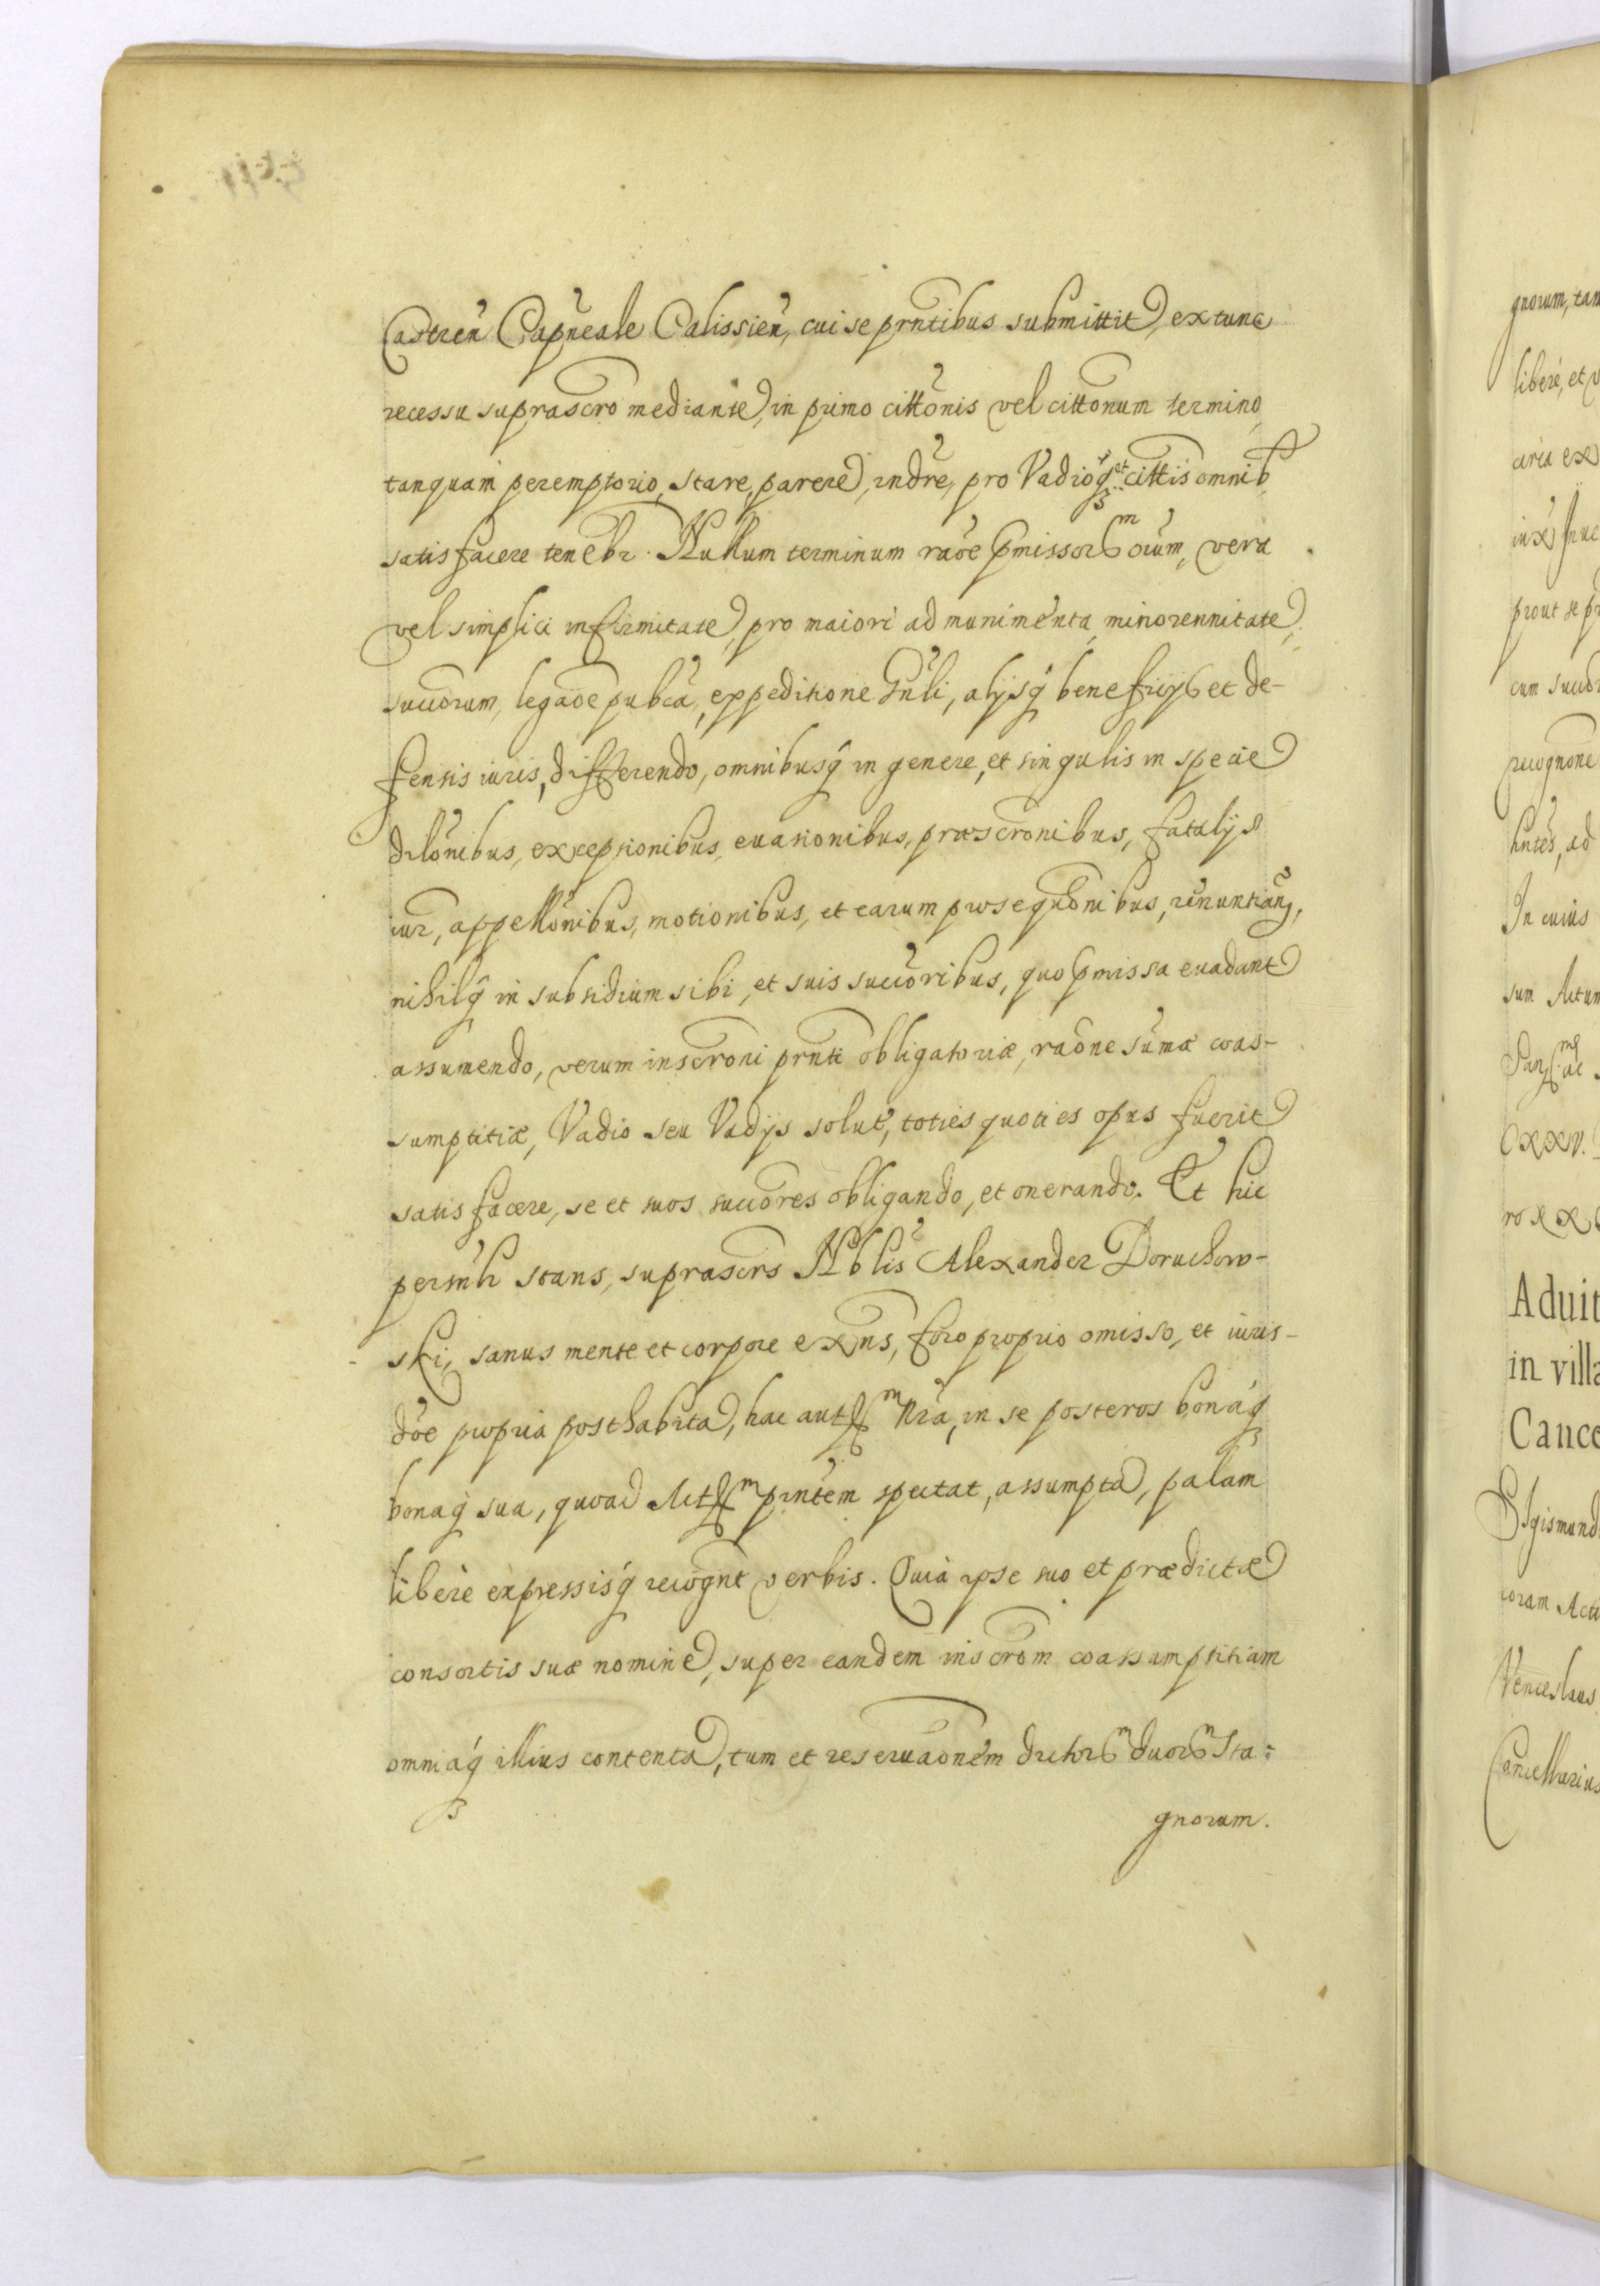 Castren̄ Capn̄eale Calissien̄, cui se prn̄tibus submittit, ex tunc
recessu suprascr̄o mediante, in primo citt̄onis vel citt̄onum termino
tanquam peremptorio, stare, parere, indr̄e, pro Vadioq́ꝫ et citt̄is omnib
satisfacere tenebr. Nullum terminum rāoe p̄missor m oium, vera
vel simplici infirmitate, pro maiori ad munimenta, minorennitate
succ̄orum, legāoe pubc̄a, expeditione Gn̄li, alijsq́ beneficijs et de-
fensis iuris, differendo, omnibusq́ in genere, et singulis in specie
dilōnibus, exceptionibus, euasionibus, præscr̄onibus, fatalijs
iur, appellōnibus, motionibus, et earum prosequōnibus, renuntian̄,
nihilq́ in subsidium sibi, et suis succ̄oribus, quo p̄missa euadant
assumendo, verum inscr̄oni prn̄ti obligatoriæ, rāone sum̄æ coas-
sumptitiæ, Vadio seu Vadijs solut, toties quoties opus fuerit
satisfacere, se et suos succ̄ores obligando, et onerando. Et hic
persn̄lr stans, suprascrs Nblis Alexander Doruchow-
ski, sanus mente et corpore exn̄s, foro proprio omisso, et iuris-
dōe propria posthabita, hac aut m nr̄a, in se posteros bonaq́
bonaq́ sua, quoad Act m prn̄tem spectat, assumpta, palam
libere expressisq́ recogn̄t verbis. Quia ipse suo et prædictæ
consortis suæ nomine, super eandem inscr̄om coassumptitiam
omniaq́ꝫ illius contenta, tum et reseruāonem dictor m duor m Sta:
gnorum.
gnorum, tam
libere, et
circa ex
prout se
cum succor
recognōne
hntes, ad
In cuius
sum Actum
CXXV.
Aduit
in villa
Cance
Sigismund
coram Act
Venceslaus
Cancellarius